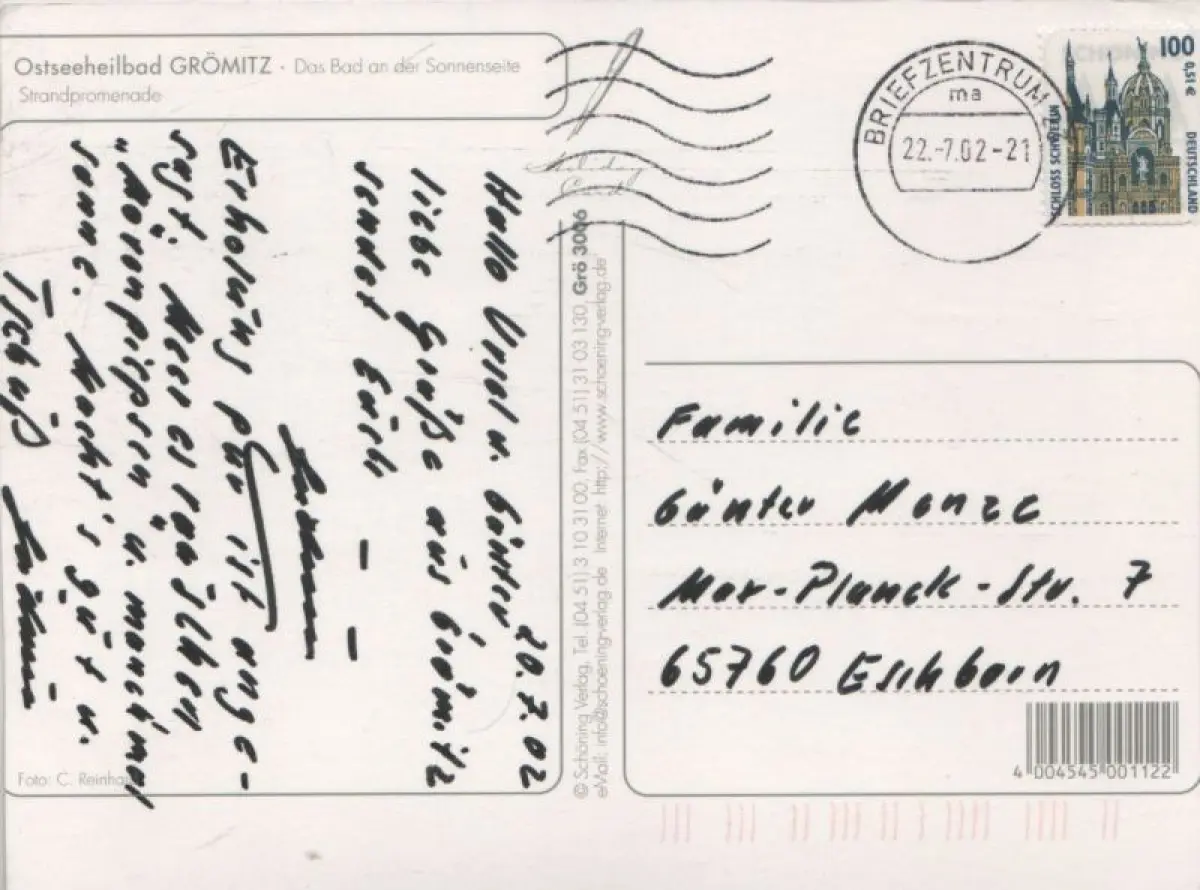 Ostseeheilbad GRÖMITZ · Das Bad an der Sonnenseite
Strandpromenade
20.7.02
Hallo Ursel u. Günter
liebe Grüße aus Grömitz
sendet Euch — —
Erholung pur ist ange-
sagt. Meeresrauschen
u. manchmal
Sonne. Macht's gut u.
Tschüß
Foto: C.
© Schöning Verlag, Tel. (04 51) 3 10 31 00, Fax (04 51) 31 03 130, Grö 3006
eMail: info@schoening-verlag.de Internet: http://www.schoening-verlag.de
Holiday
Card
BRIEFZENTRUM
ma
22.-7.02-21
100
0,51 €
DEUTSCHLAND
SCHLOSS SCHWERIN
Familie
Günter Menze
Max-Planck-Str. 7
65760 Eschborn
4 004545 001122